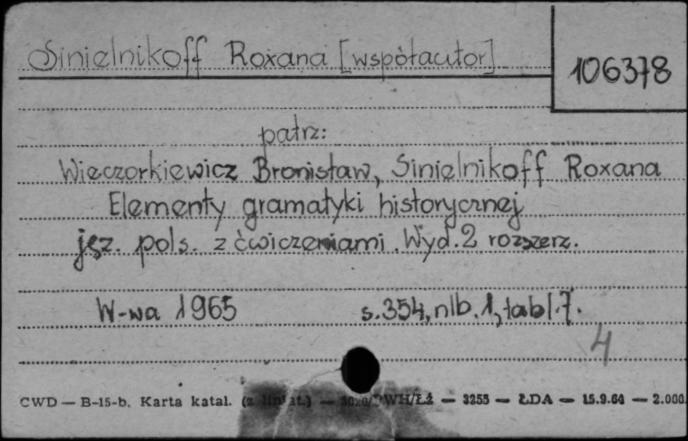 Sinielnikoff Roxana [współautor]
106378
patrz:
Wieczorkiewicz Bronisław, Sinielnikoff Roxana
Elementy gramatyki historycznej
jęz. pols. z ćwiczeniami. Wyd. 2 rozszerz.
W-wa 1965 s. 354, nlb. 1, tabl. 7.
4
CWD — B-15-b. Karta katal. WH/Łż — 3255 — ŁDA — 15.9.64 — 2.000.